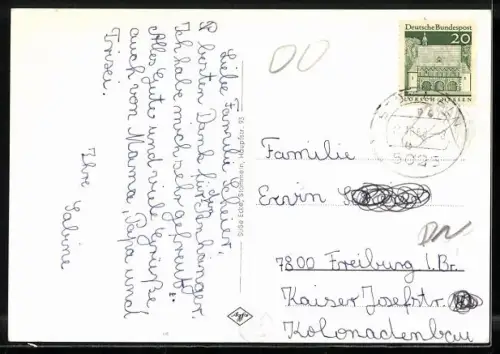 Liebe Familie Scheier,
herzlichen Dank für den Anhänger.
Ich habe mich sehr gefreut.
Alles Gute und viele Grüße
auch von Mama, Papa und
Trixi.
Ihre Sabine
Deutsche Bundespost
20
LORSCH/HESSEN
Familie
Erwin
7800 Freiburg i. Br.
Kaiser Josefstr.
Kolonadenbau
Agfa